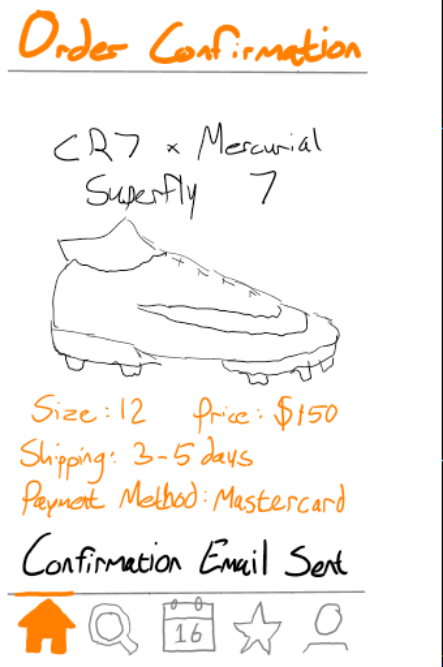 Order Confirmation
CR7 x Mercurial
Superfly 7
Size: 12 Price: $150
Shipping: 3-5 days
Payment Method: Mastercard
Confirmation Email Sent
16